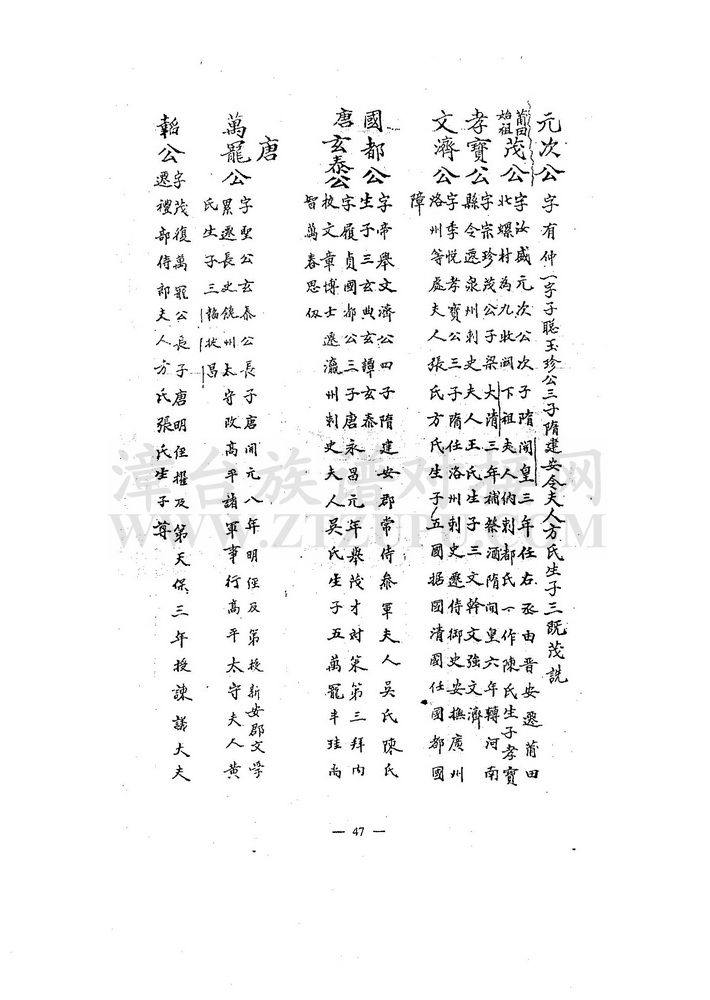 元次公 字有仲一字子聪玉珍公三子隋建安令夫人方氏生子三既茂詵
莆田始祖茂公 字汝盛元次公次子隋開皇三年任右丞由晋安遷莆田
北螺村為九牧阙下祖夫人俠刺都氏一作陳氏生子孝寶
孝寶公 字宗珍茂公子梁大清三年補祭酒隋開皇六年轉河南
縣令遷泉州刺史夫人王氏生子三文幹文強文濟
文濟公 字季悦孝寶公三子隋任洛州刺史遷侍御史安撫廣州
洛州等處夫人張氏方氏生子五國据國清國任國都國
障
國都公 字帝舉文濟公四子隋建安郡常侍叅軍夫人吴氏陳氏
生子三玄典玄譚玄泰
唐
玄泰公 字履貞國都公三子唐永昌元年舉茂才対策第三拜内
校文章博士遷瀛州刺史夫人吴氏生子五萬罷半珪尚
智萬春思伋
唐
萬罷公 字聖公玄泰公長子唐開元八年明經及第授新安郡文學
累遷長史饒州太守改高平諸軍事行高平太守夫人黄
氏生子三韜披昌
韜公 字茂復萬罷公長子唐明經擢及第天保三年授諫議大夫
遷禮部侍郎夫人方氏張氏生子尊
漳台族谱对接网
WWW.ZTZUPU.COM
— 47 —